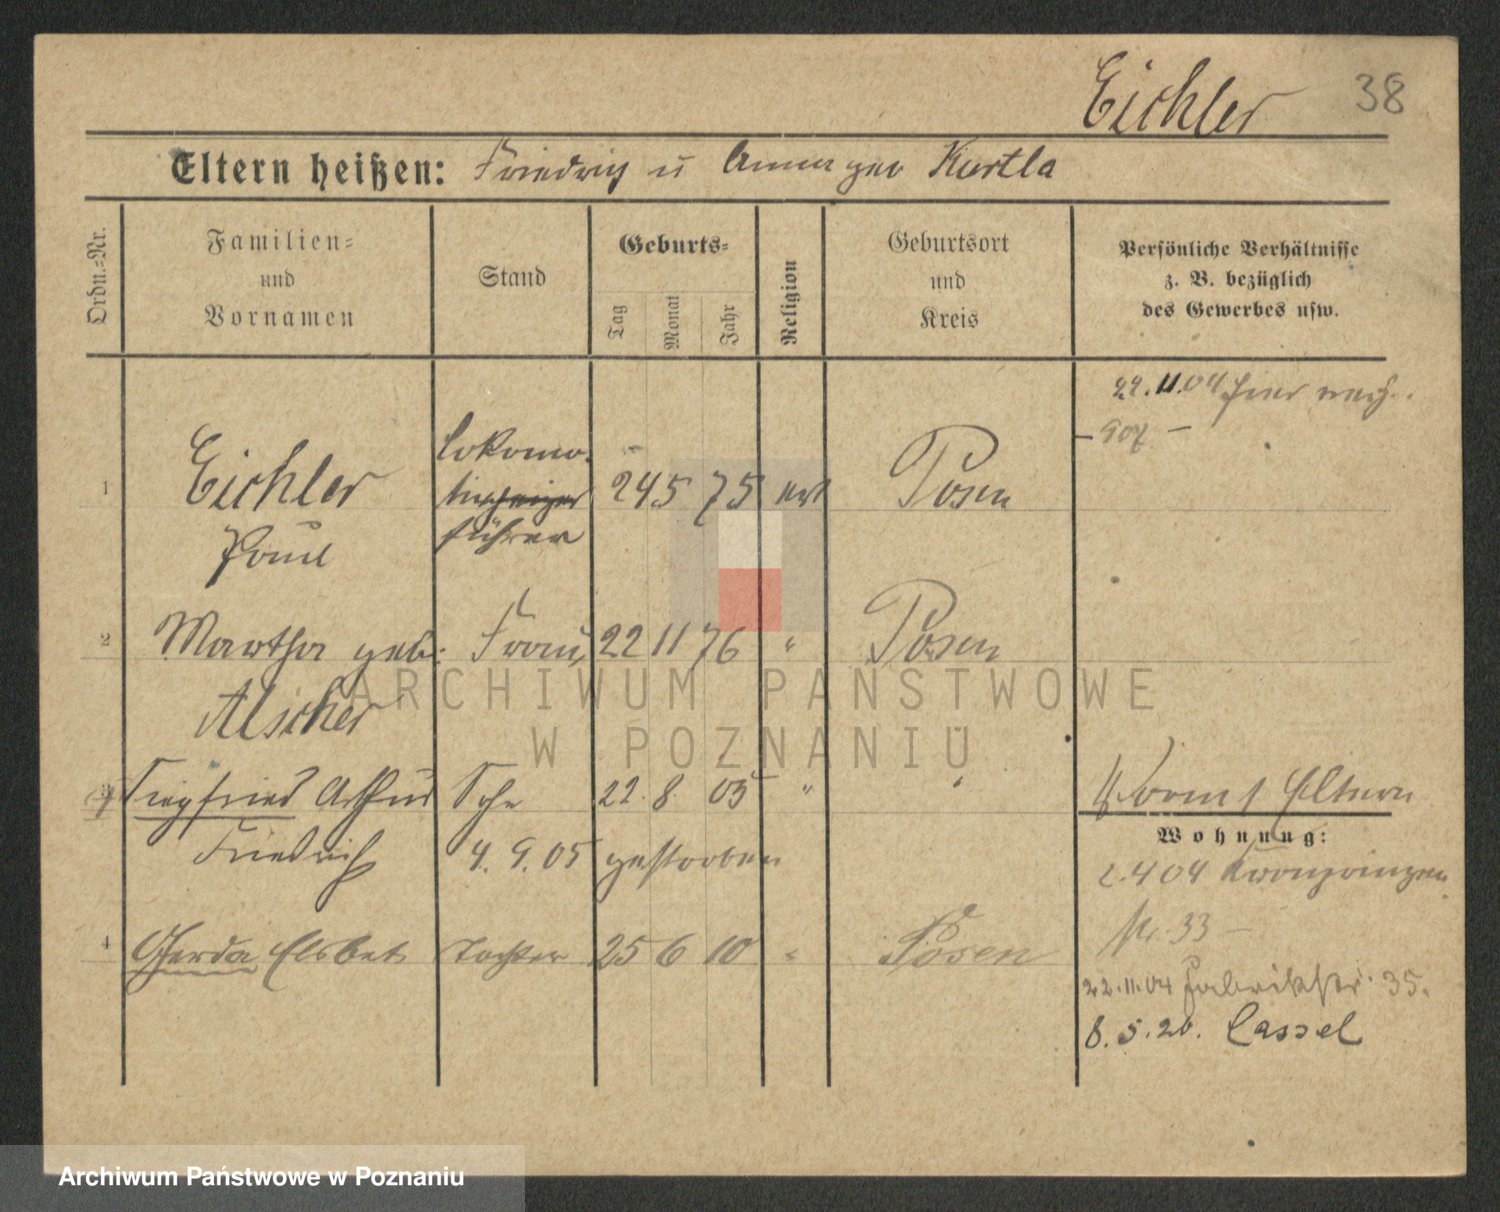 Eichler 38
Eltern heißen: Friedrich u Anna geb Kurtla
Ordn.-Nr.
Familien- und Vornamen
Stand
Geburts-
Tag Monat Jahr
Religion
Geburtsort und Kreis
Persönliche Verhältnisse
z. B. bezüglich
des Gewerbes usw.
29.11.04 hier
907 –
Lokomo-
1 Eichler 24 5 75 Posen
führer
Paul
2 Martha geb: Frau 22 11 76 " Posen
Alscher
3 Siegfried Arthur Sohn 22. 8. 05 " "
Eltern
Wohnung:
Friedrich 4. 9. 05 gestorben
2.4 04 Kronprinzen
Nr. 33 –
4 Gerda Elsbet Tochter 25 6 10 " Posen
22.11.04 Fabrikstr. 35.
8.5.20. Cassel
ARCHIWUM PAŃSTWOWE
W POZNANIU
Archiwum Państwowe w Poznaniu